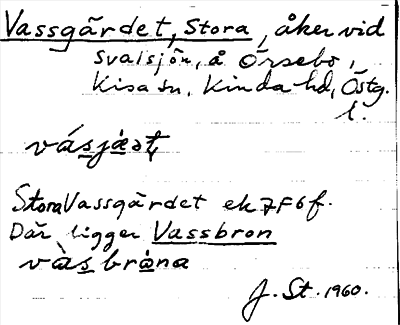 Vassgärdet, Stora, åker vid
Svalsjön, å Örsebo,
Kisa sn, Kinda hd, Östg.
l.
vásjæ̀ṭ
Stora Vassgärdet ek 7F6f.
Där ligger Vassbron
vàs bròna
J. St. 1960.